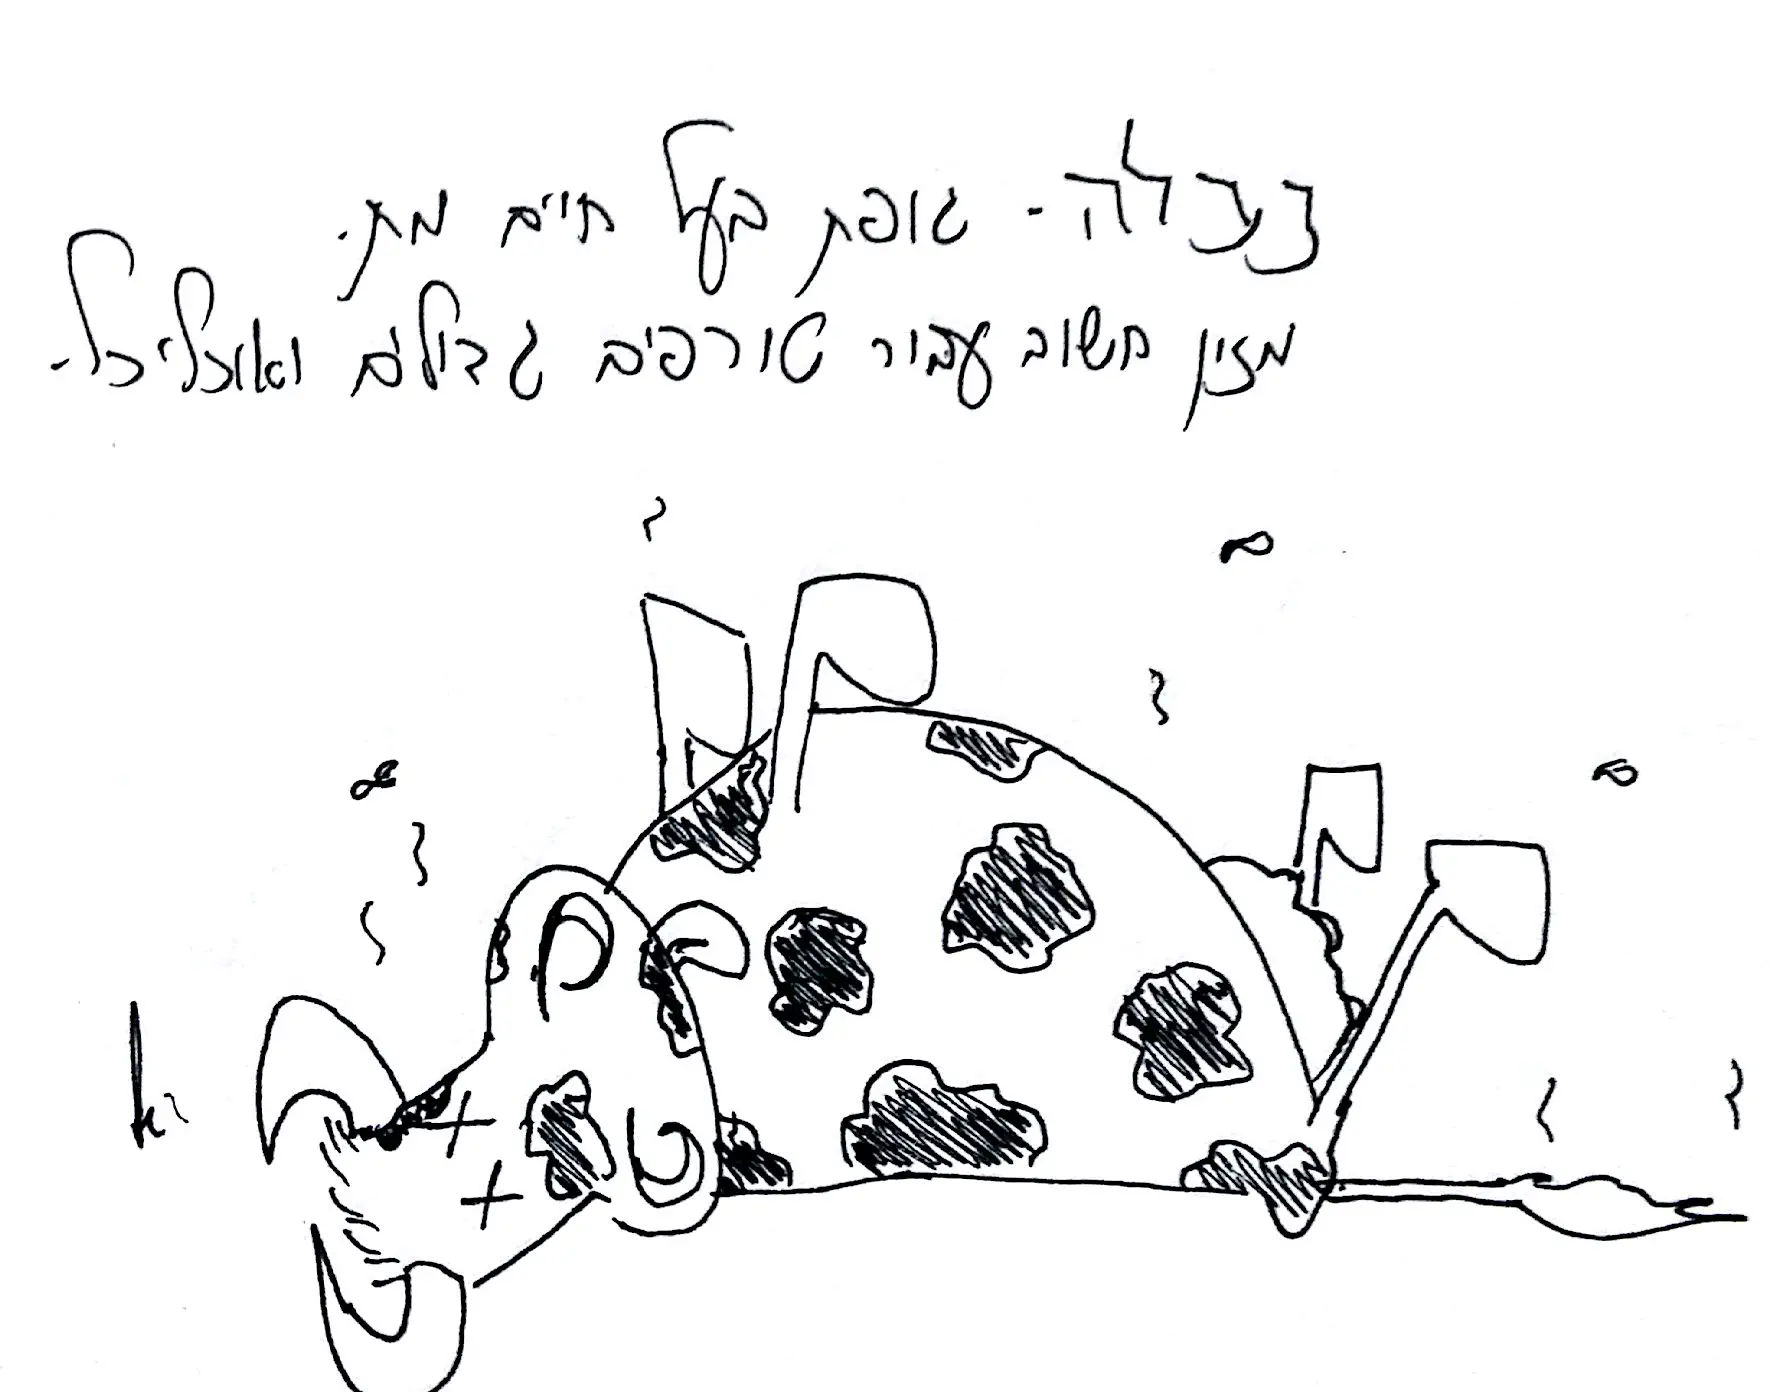 נבלה - גופת בעל חיים מת.
מזון חשוב עבור טורפים גדולים ואוכלי כל.